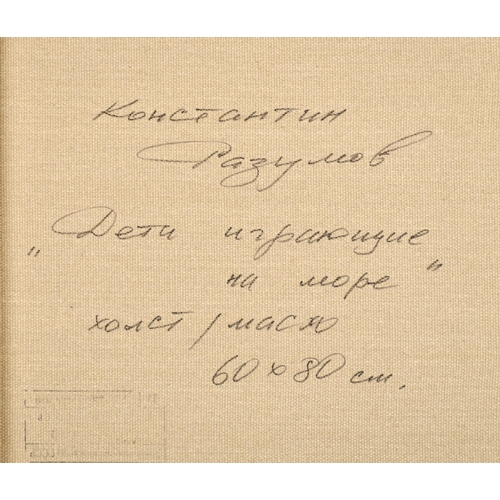 Константин
Разумов
„Дети играющие
на море"
холст / масло
60 х 80 см.